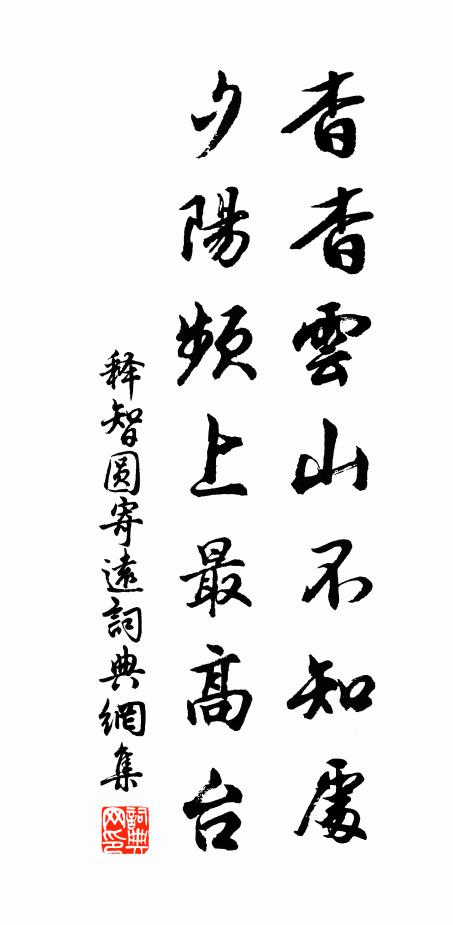 杳杳雲山不知處
夕陽頻上最高台
释智圆寄遠詞典網集
詞典网印